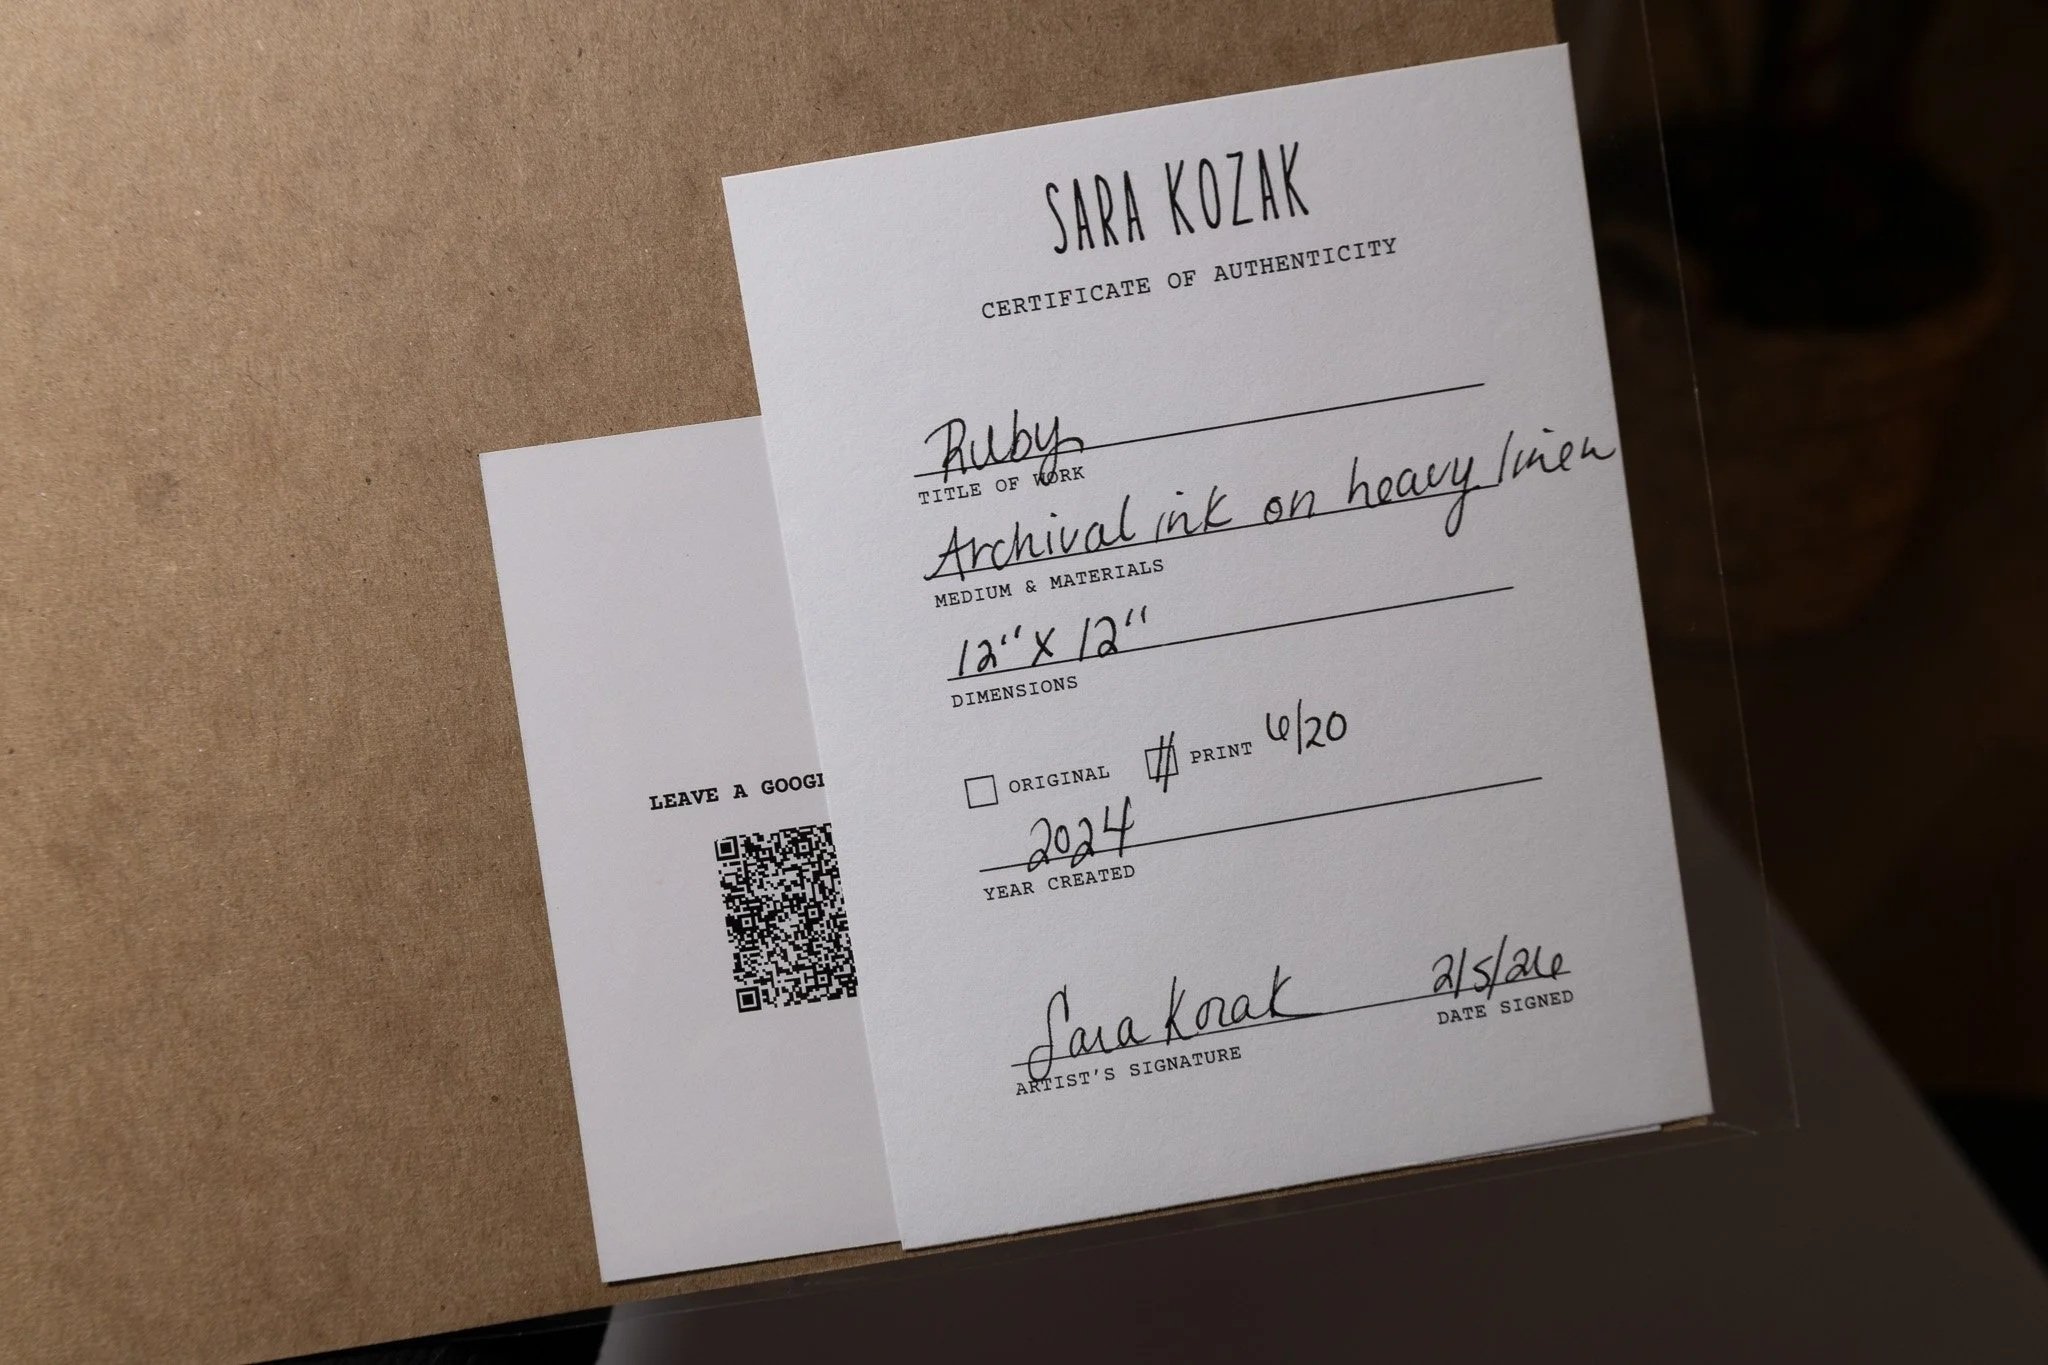 SARA KOZAK
CERTIFICATE OF AUTHENTICITY
Ruby
TITLE OF WORK
Archival ink on heavy linen
MEDIUM & MATERIALS
12" x 12"
DIMENSIONS
ORIGINAL PRINT 6/20
2024
YEAR CREATED
Sara Kozak 2/5/26
ARTIST'S SIGNATURE DATE SIGNED
LEAVE A